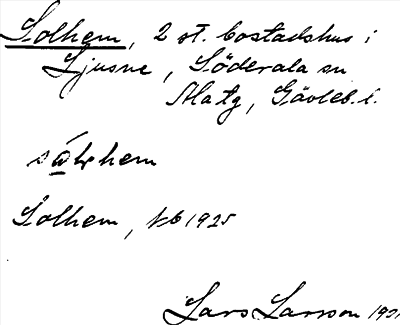 Solhem, 2 st. bostadshus i
Ljusne, Söderala sn
Matg, Gävleb. l.
Solhem, 1925
Lars Larsson